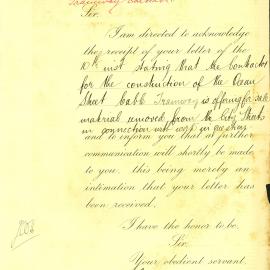 Tramway
Sir.
I am directed to acknowledge
the receipt of your letter of the
10th inst stating that the contractors
for the construction of the Ocean
Street Cable Tramway is offering for sale
material removed from the City Streets
in connection with work in question
and to inform you that a further
communication will shortly be made
to you, this being merely an
intimation that your letter has
been received.
I have the honor to be.
Sir.
Your obedient servant.